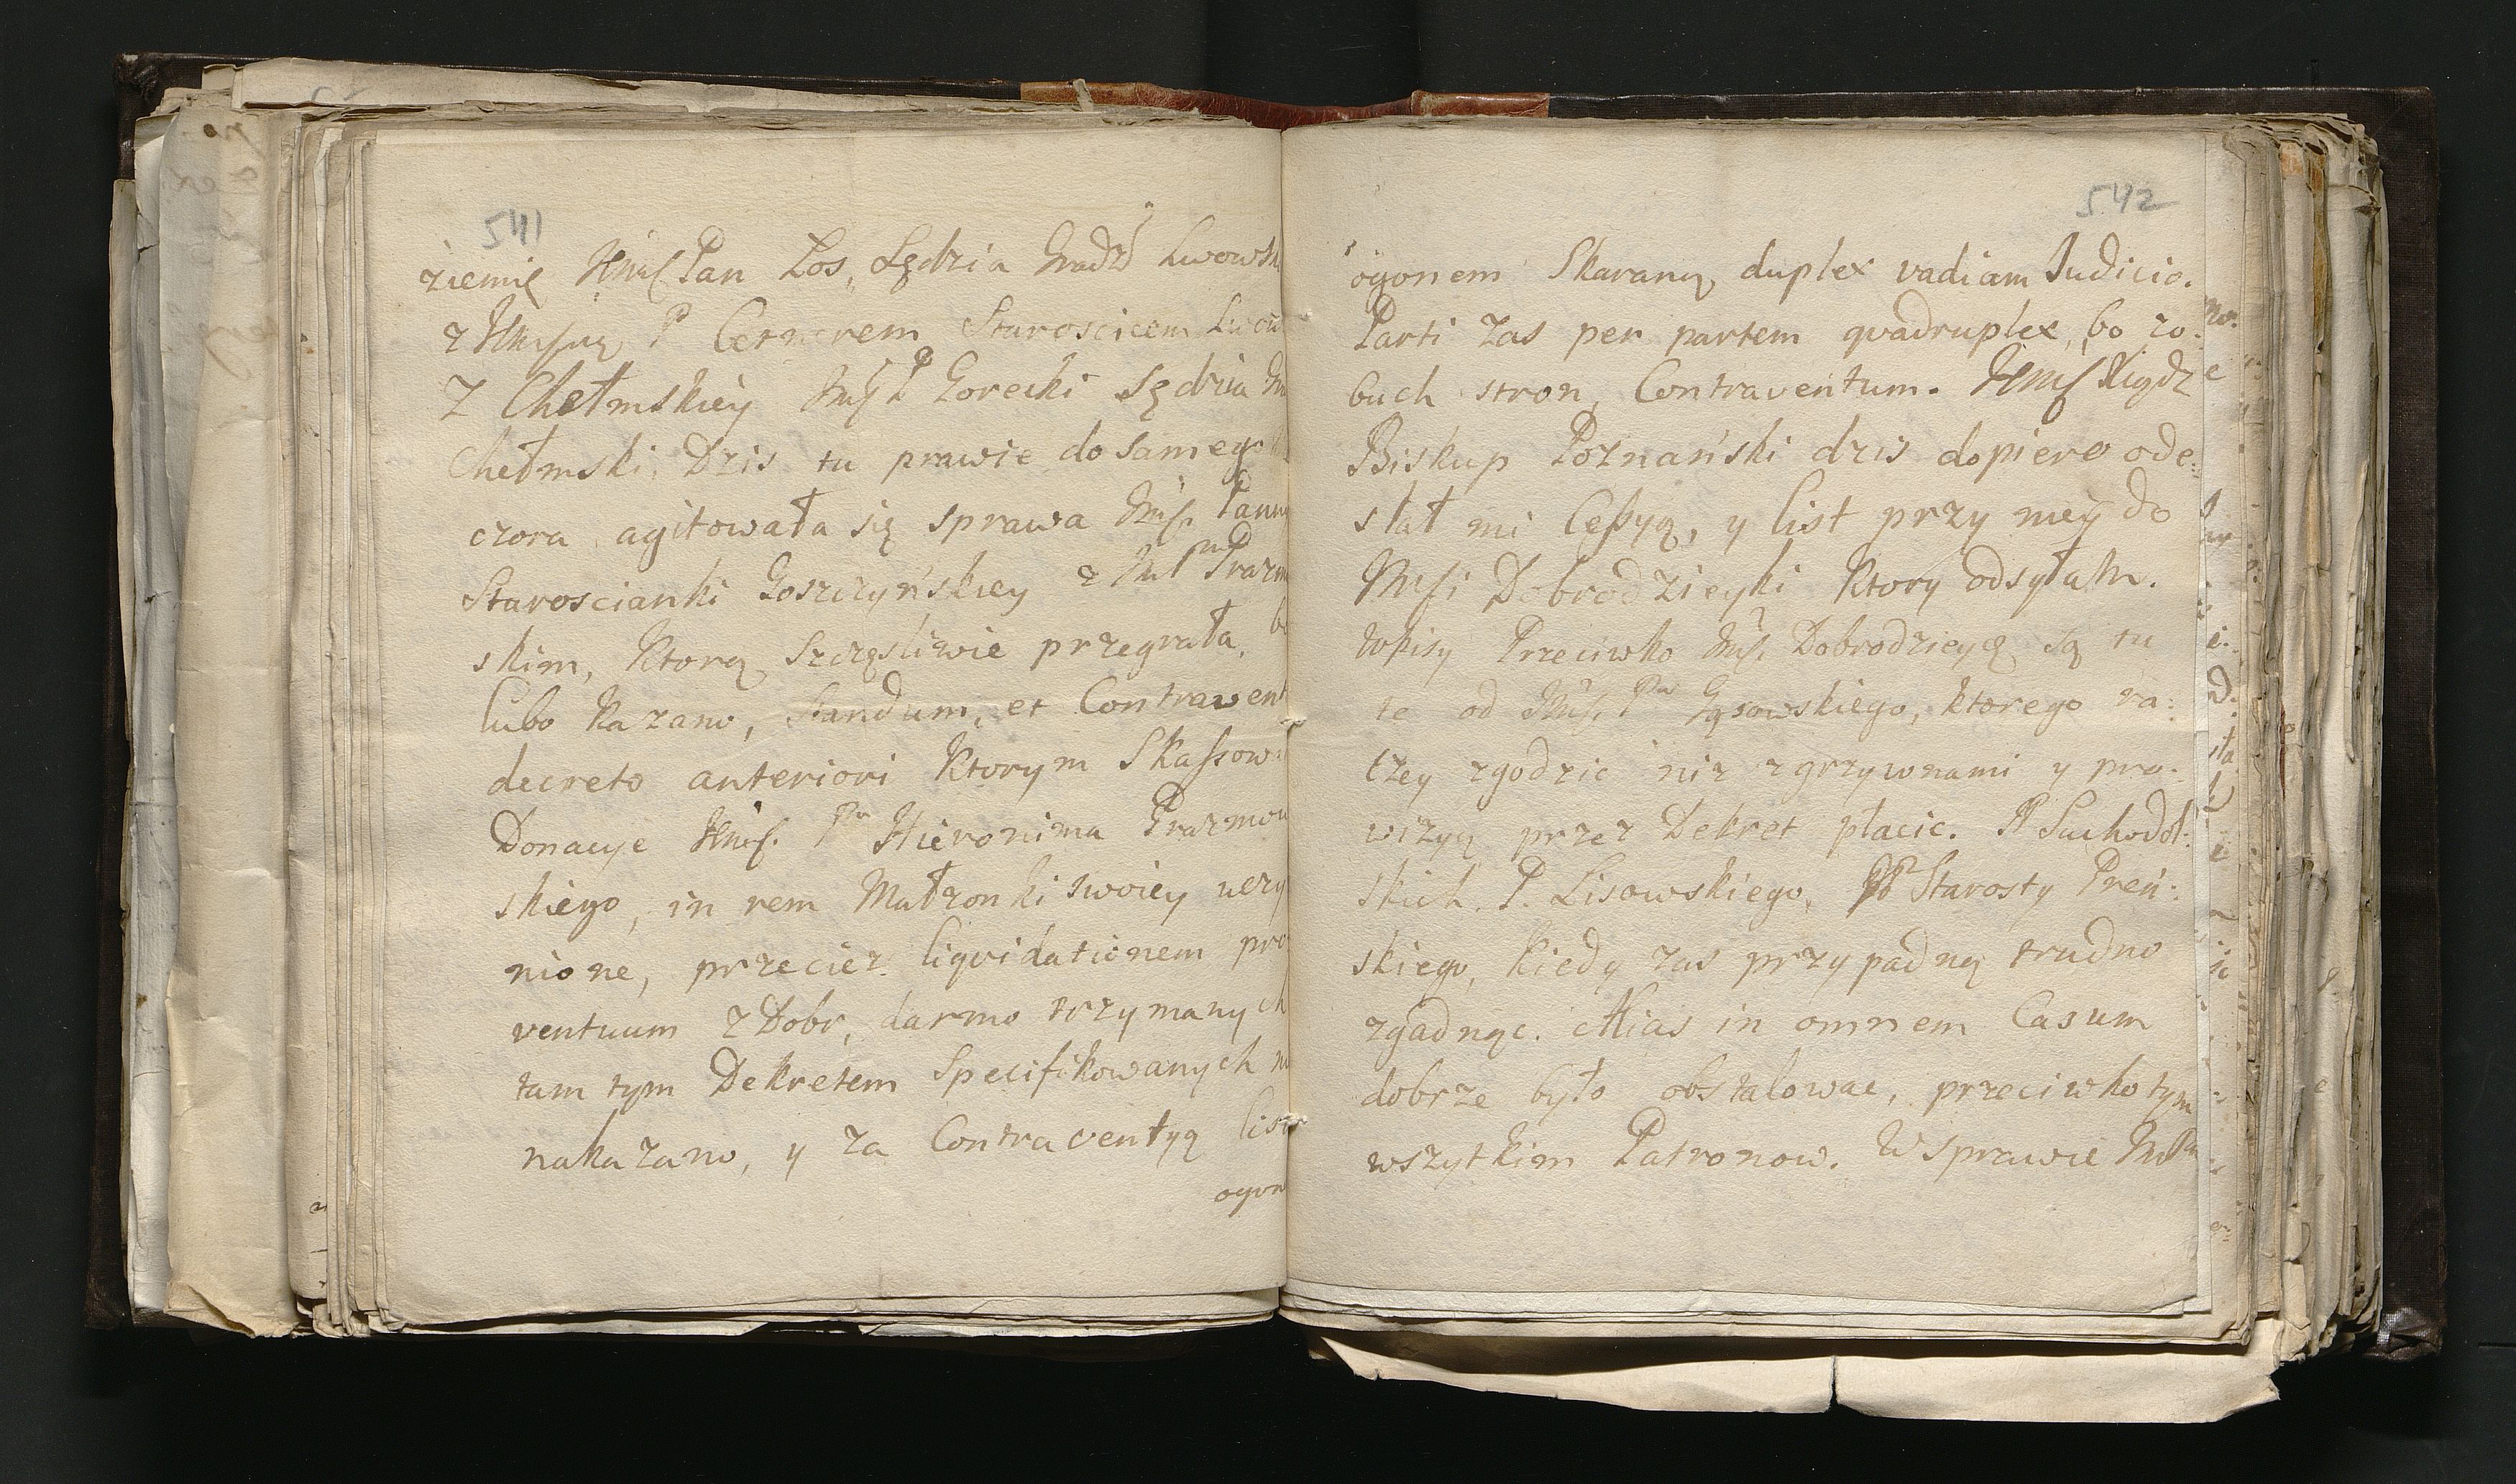 541
ziemię Jmsć Pan Łos, Sędzia Gradzǐ Lwowsk
z Jmścią P Cetnerem Staroscicem Lwow
Z Chełmskiey Jmść P Gorecki Sędzia
Chełmski. Dzis tu prawie do samego
czora agitowała się sprawa Jmśc. Panny
Staroscianki Goszczyńskiey z Jmć Pnm Prazm
skim, Ktorą Szczęsliwie przegrała, bo
lubo Kazano, Standum, et Contravent
decreto anteriori Ktorym Skassow
Donacye Jmsć. Pa Hieronima Prazmow
skiego, in rem Małżonki swoiey uczy
nione, przeciez liqvidationem pro
ventuum z Dobr, darmo trzymanych
tam tym Dekretem Specifikowanych
nakazano, y za Contraventyą
ogon
542
ogonem Skaraną duplex vadiam Judicio.
Parti zas per partem qvadruplex, bo zo:
buch stron, Contraventum. Jmść Xiądz
Biskup Poznański dzis dopiero ode:
słał mi Cessyą, y list przy niey do
Jmści Dobrodzieyki Ktory odsyłam.
Wpisy Przeciwko Jmśc Dobrodzieyą Są tu
te od Jmść. Pa Gąsowskiego, ktorego ra:
czey zgodzic niz zgrzywnami y pro:
wizyą przez Dekret płacic. P Suchodol:
skich. P. Lisowskiego, Starosty Preń:
skiego, kiedy zas przypadną trudno
zgadnąc. Alias in omnem Casum
dobrze było obstalowac, przeciwko tym
wszytkim Patronow. W sprawie Jmć Pa